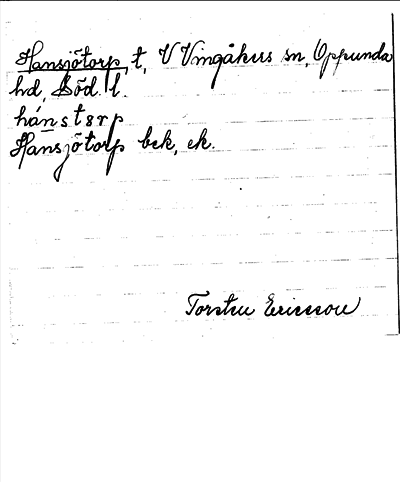 Hansjötorp, t, V Vingåkers sn, Oppunda
hd, Söd. l.
hánstərp
Hansjötorp bek, ek.
Torsten Ericsson